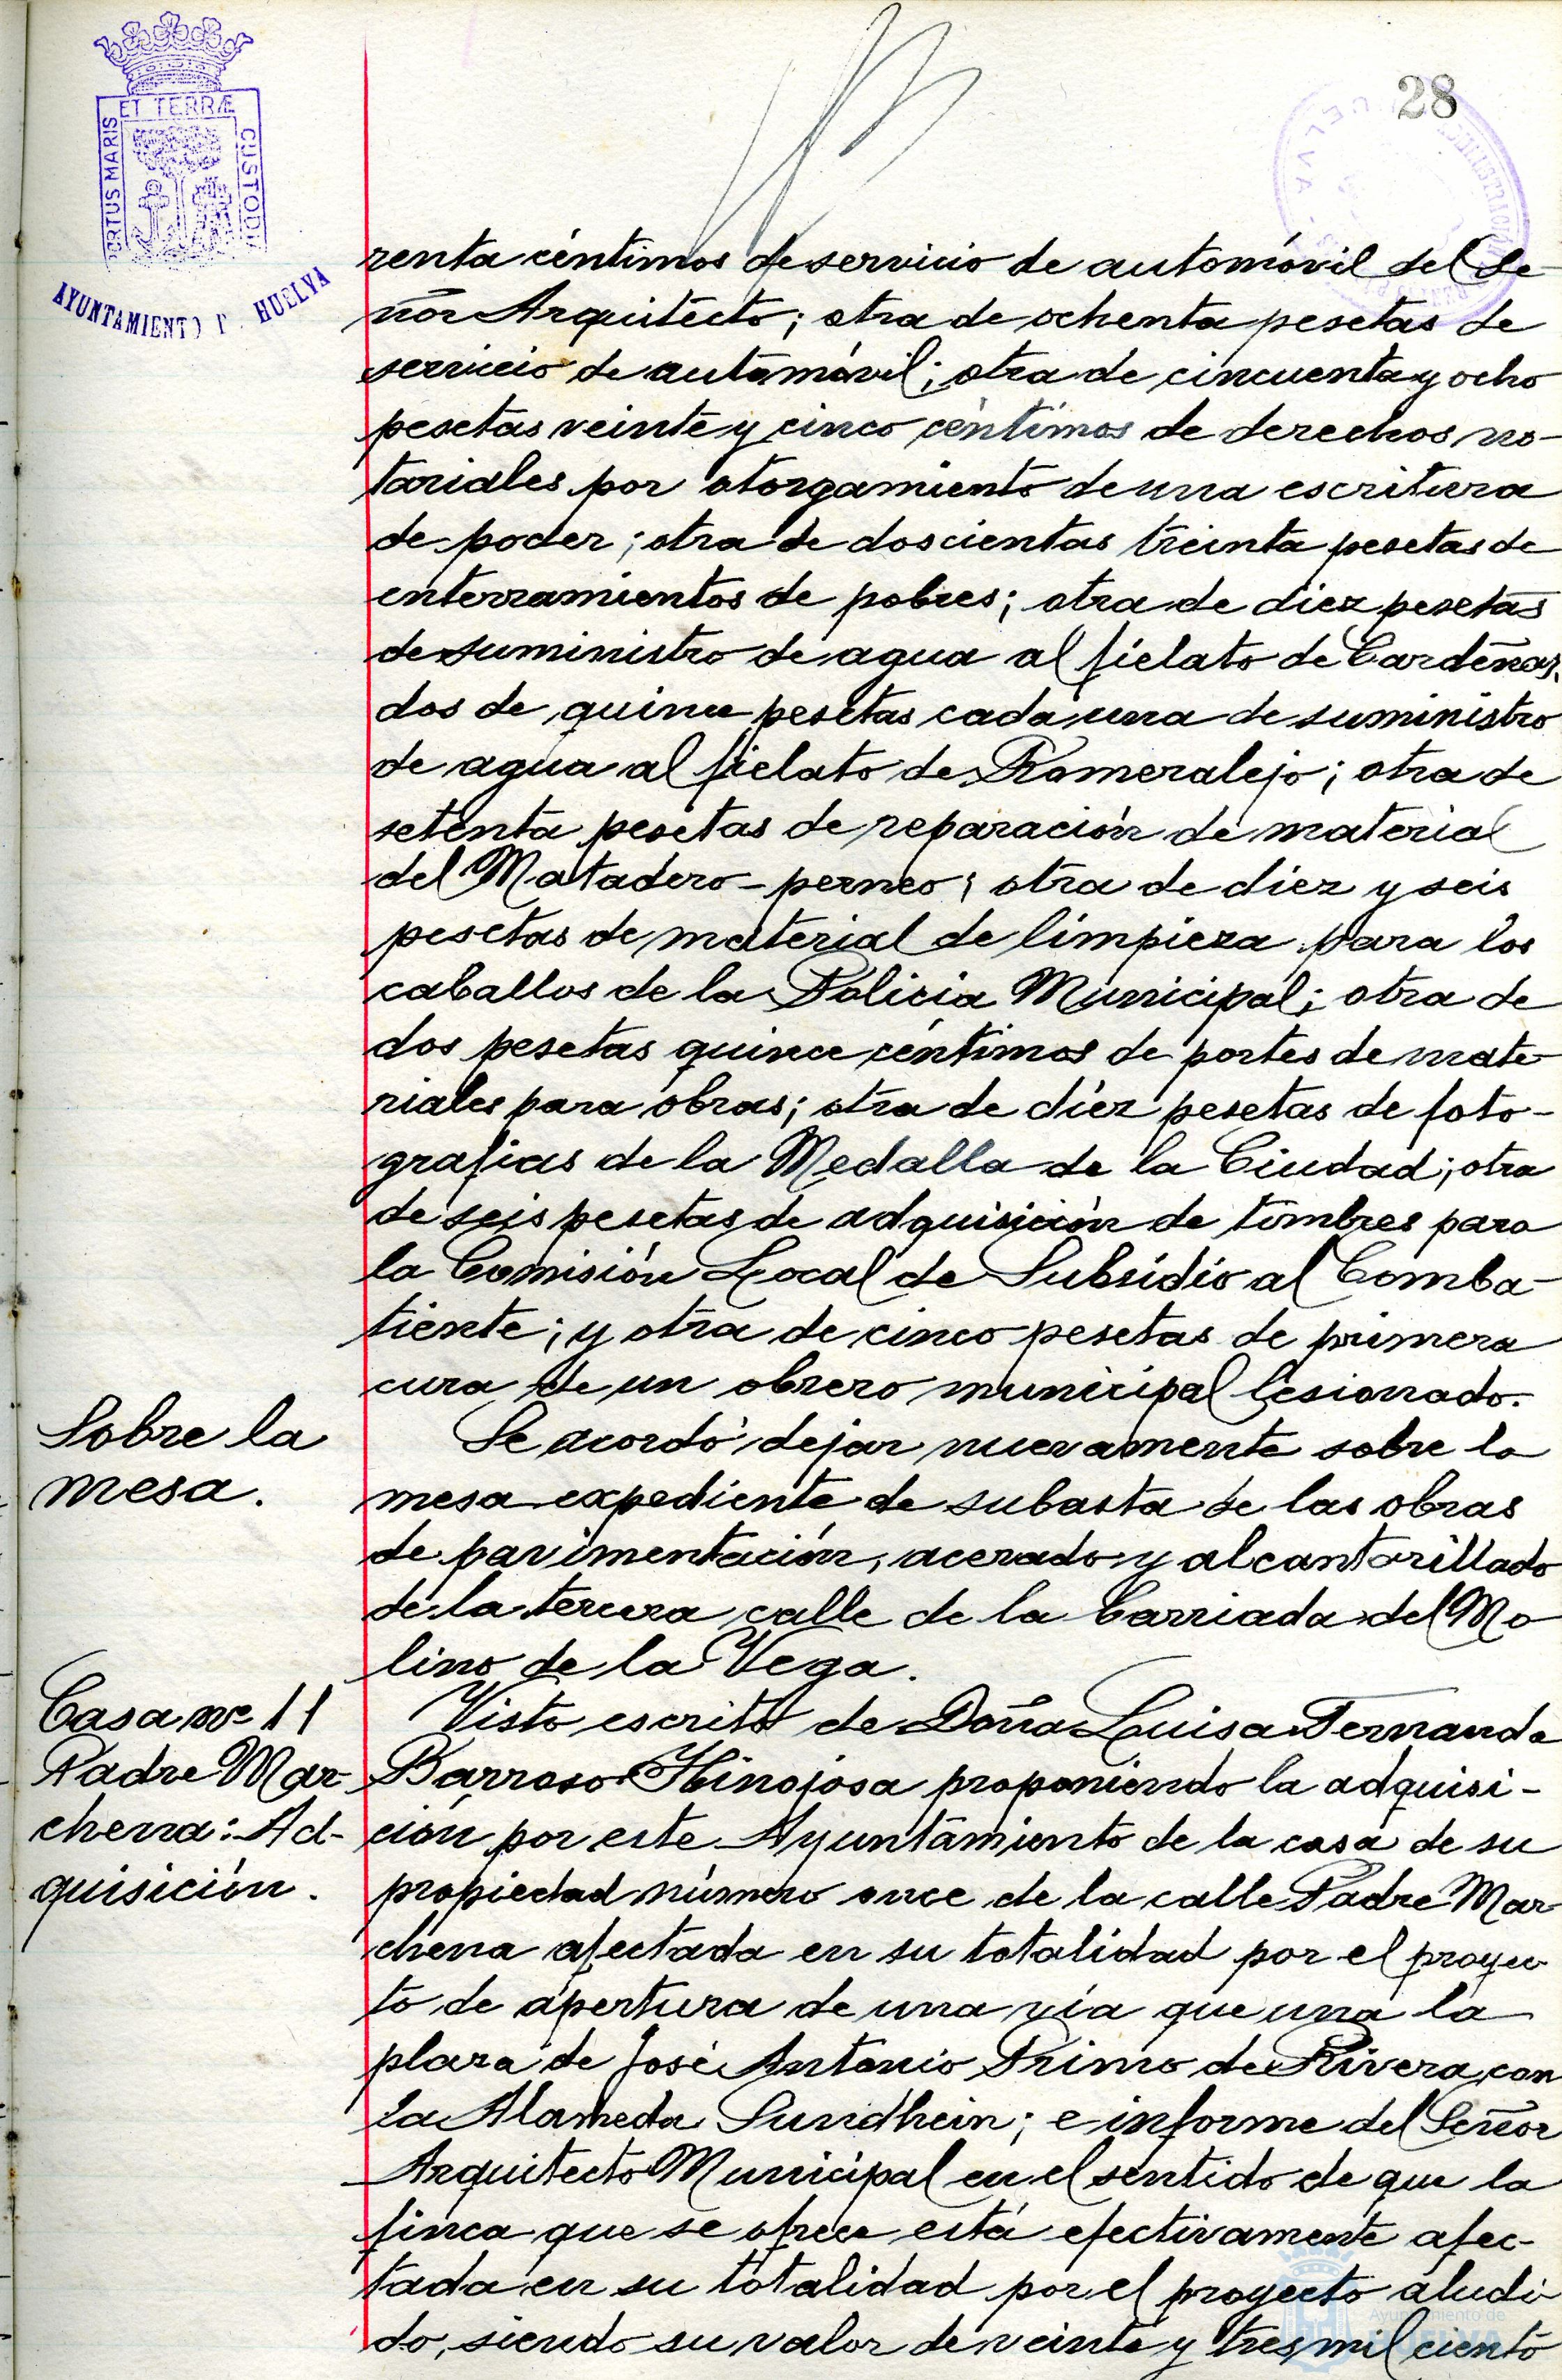 28
PORTUS MARIS ET TERRÆ CUSTODIA
AYUNTAMIENTO D HUELVA
renta céntimos de servicio de automóvil del Se-
ñor Arquitecto; otra de ochenta pesetas de
servicio de automóvil; otra de cincuenta y ocho
pesetas veinte y cinco céntimos de derechos no-
tariales por otorgamiento de una escritura
de poder; otra de doscientas treinta pesetas de
enterramientos de pobres; otra de diez pesetas
de suministro de agua al fielato de Cardeñas,
dos de quince pesetas cada una de suministro
de agua al fielato de Romeralejo; otra de
setenta pesetas de reparación de material
del Matadero-perneo; otra de diez y seis
pesetas de material de limpieza para los
caballos de la Policia Municipal; otra de
dos pesetas quince céntimos de portes de mate-
riales para obras; otra de diez pesetas de foto-
grafias de la Medalla de la Ciudad; otra
de seis pesetas de adquisición de timbres para
la Comisión Local de Subsidio al Comba-
tiente; y otra de cinco pesetas de primera
cura de un obrero municipal lesionado.
Sobre la
mesa.
Se acordó dejar nuevamente sobre la
mesa expediente de subasta de las obras
de pavimentación, acerado y alcantarillado
de la tercera calle de la barriada del Mo
lino de la Vega.
Casa nº 11
Padre Mar-
chena: Ad-
quisición.
Visto escrito de Doña Luisa Fernanda
Barroso Hinojosa proponiendo la adquisi-
ción por este Ayuntamiento de la casa de su
propiedad número once de la calle Padre Mar-
chena afectada en su totalidad por el proyec
to de apertura de una via que una la
plaza de José Antonio Primo de Rivera con
la Alameda Sundhein; e informe del Señor
Arquitecto Municipal en el sentido de que la
finca que se ofrece está efectivamente afec-
tada en su totalidad por el proyecto aludi
do, siendo su valor de veinte y tres mil ciento
Ayuntamiento de
HUELVA